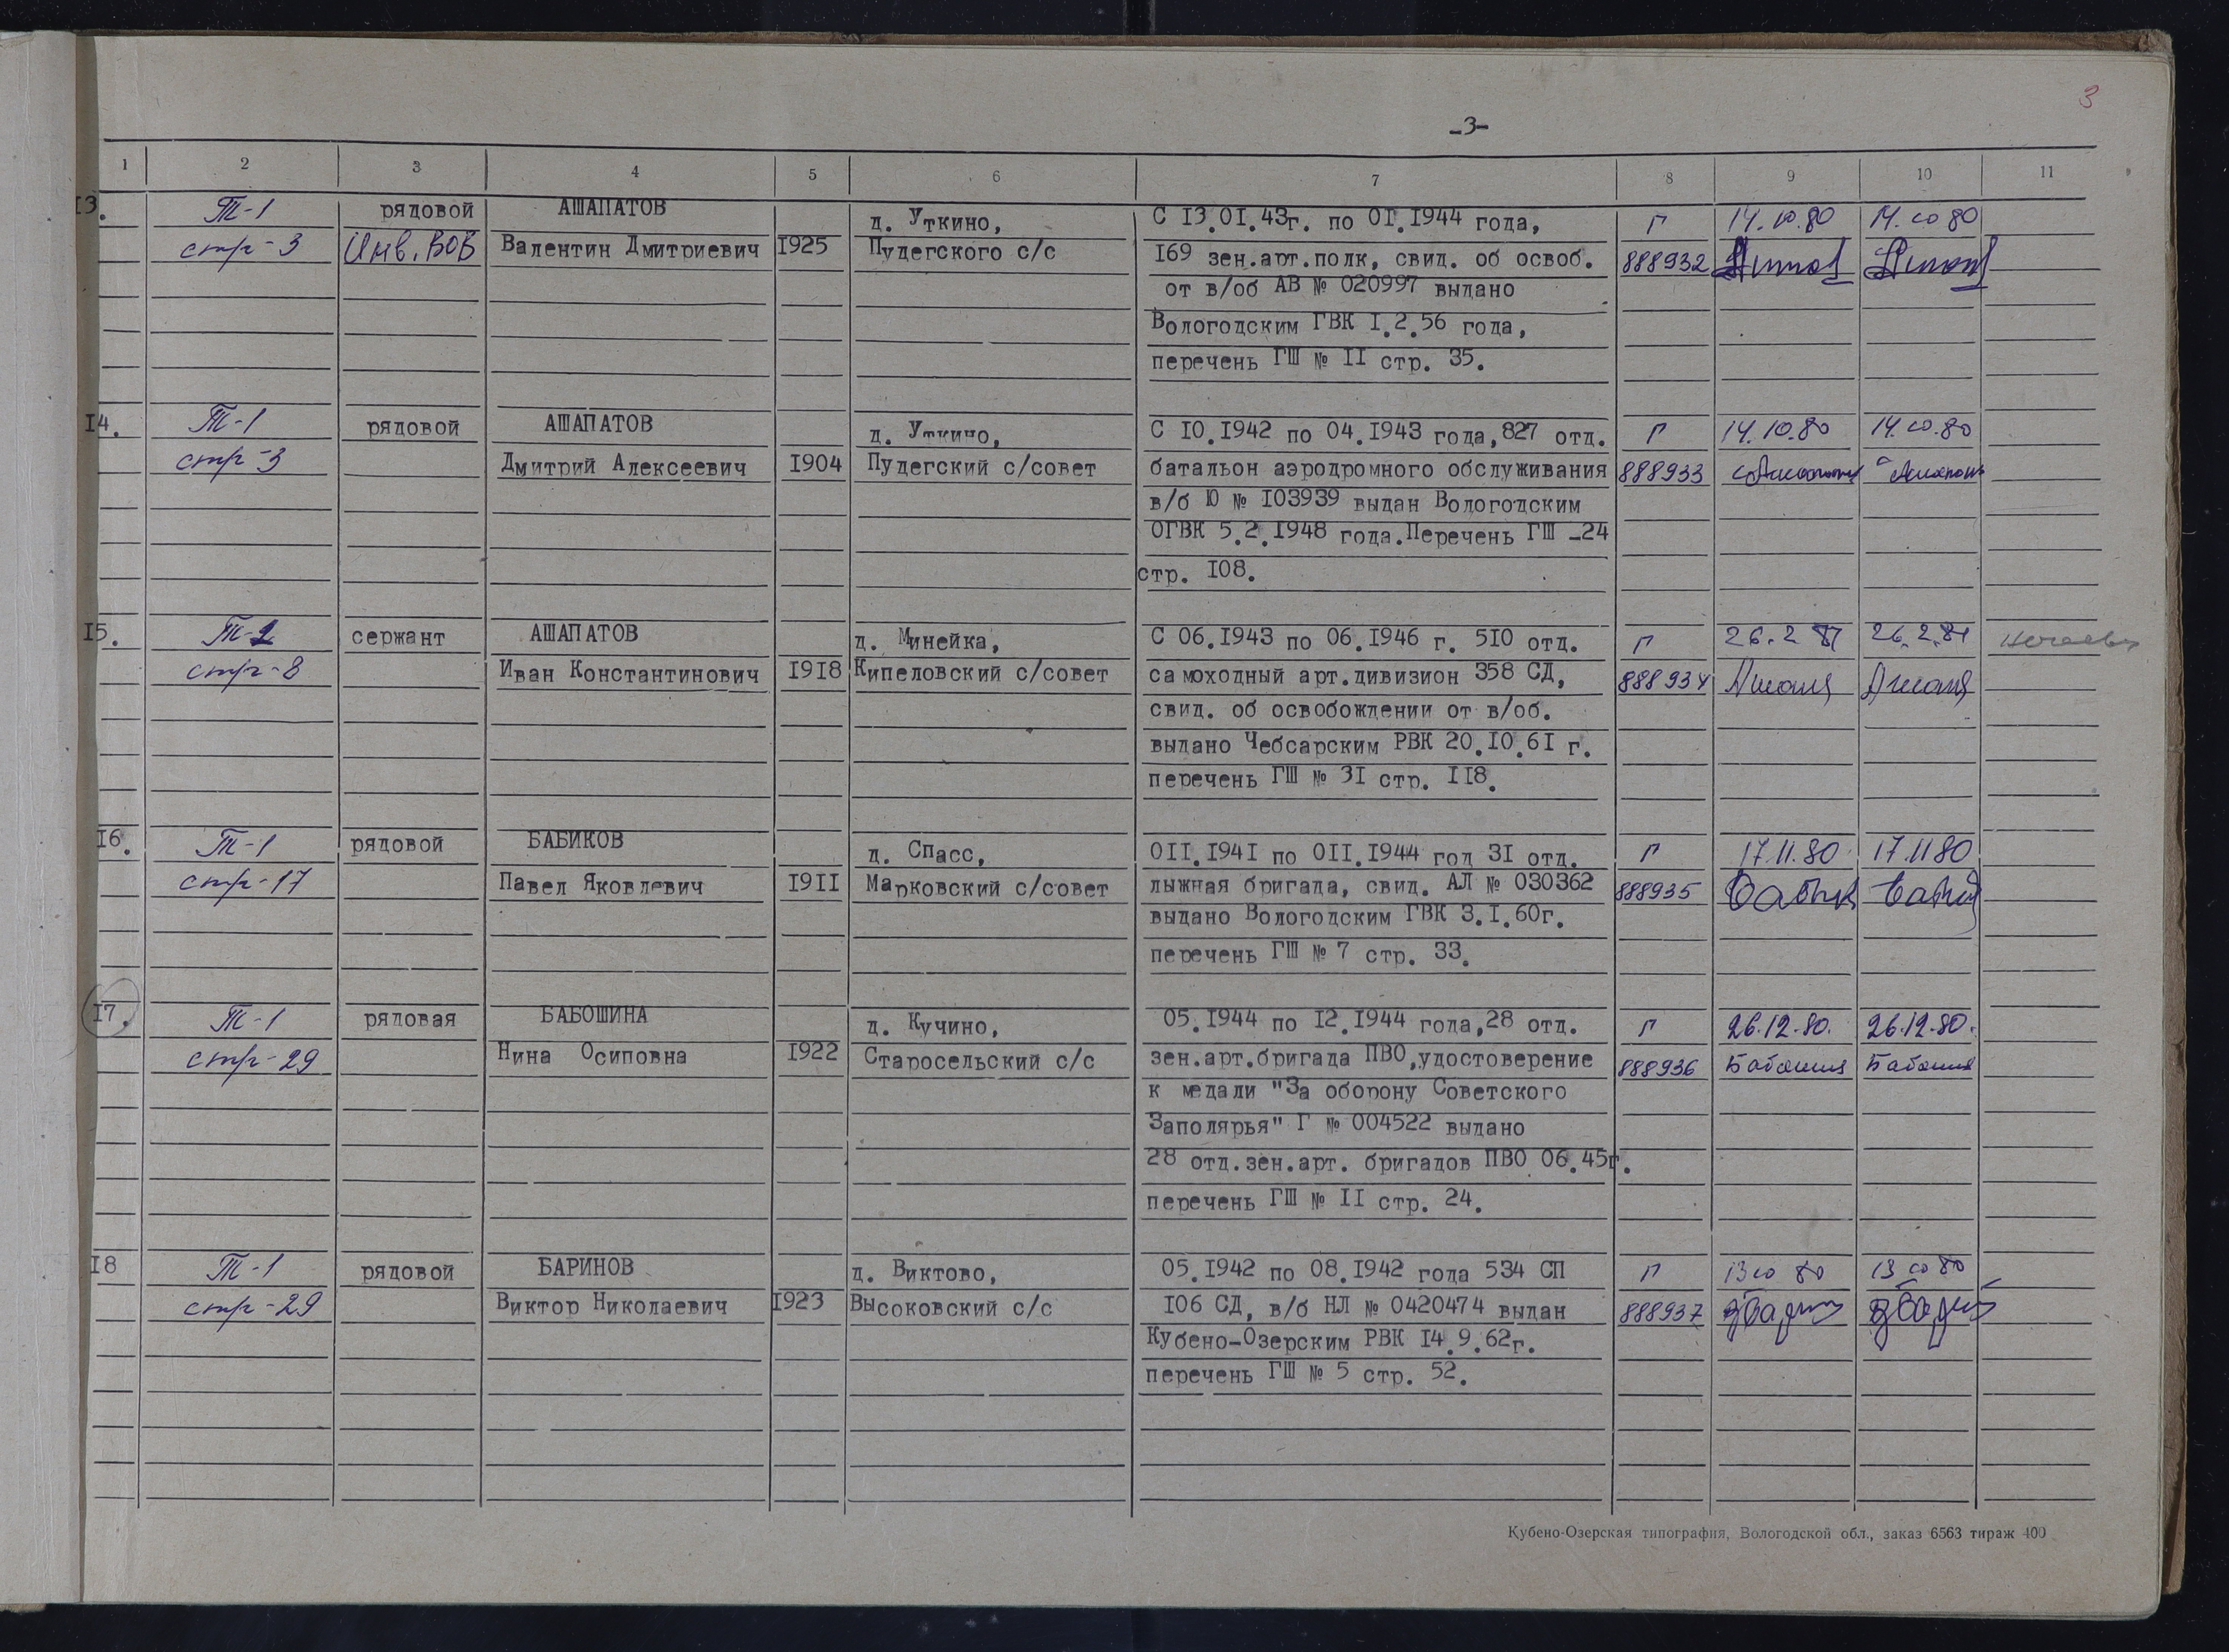 3
-3-
1 2 3 4 5 6 7 8 9 10 11
13. Т-1 рядовой АШАПАТОВ д. Уткино, С 13.01.43г. по 01.1944 года, Г 14.10.80 14.10 80
стр-3 Инв. ВОВ Валентин Дмитриевич 1925 Пудегского с/с 169 зен.арт.полк, свид. об освоб. 888932
от в/об АВ № 020997 выдано
Вологодским ГВК 1.2.56 года,
перечень ГШ № 11 стр. 35.
14. Т-1 рядовой АШАПАТОВ д. Уткино, С 10.1942 по 04.1943 года,827 отд. Г 14.10.80 14.10.80
стр-3 Дмитрий Алексеевич 1904 Пудегский с/совет батальон аэродромного обслуживания 888933
в/б Ю № 103939 выдан Вологодским
ОГВК 5.2.1948 года.Перечень ГШ -24
стр. 108.
15. Т-2 сержант АШАПАТОВ д. Минейка, С 06.1943 по 06.1946 г. 510 отд. Г 26.2 81 26.2.81
стр-8 Иван Константинович 1918 Кипеловский с/совет самоходный арт.дивизион 358 СД, 888934
свид. об освобождении от в/об.
выдано Чебсарским РВК 20.10.61 г.
перечень ГШ № 31 стр. 118.
16. Т-1 рядовой БАБИКОВ д. Спасс, 011.1941 по 011.1944 год 31 отд. Г 17.11.80 17.11 80
стр-17 Павел Яковлевич 1911 Марковский с/совет лыжная бригада, свид. АЛ № 030362 888935
выдано Вологодским ГВК 3.1.60г.
перечень ГШ № 7 стр. 33.
17. Т-1 рядовая БАБОШИНА д. Кучино, 05.1944 по 12.1944 года,28 отд. Г 26.12.80. 26.12.80.
стр-29 Нина Осиповна 1922 Старосельский с/с зен.арт.бригада ПВО,удостоверение 888936
к медали "За оборону Советского
Заполярья" Г № 004522 выдано
28 отд.зен.арт. бригадов ПВО 06.45г.
перечень ГШ № 11 стр. 24.
18 Т-1 рядовой БАРИНОВ д. Виктово, 05.1942 по 08.1942 года 534 СП Г 13 10 80 13 10 80
стр-29 Виктор Николаевич 1923 Высоковский с/с 106 СД, в/б НЛ № 0420474 выдан 888937
Кубено-Озерским РВК 14.9.62г.
перечень ГШ № 5 стр. 52.
Кубено-Озерская типография, Вологодской обл., заказ 6563 тираж 400